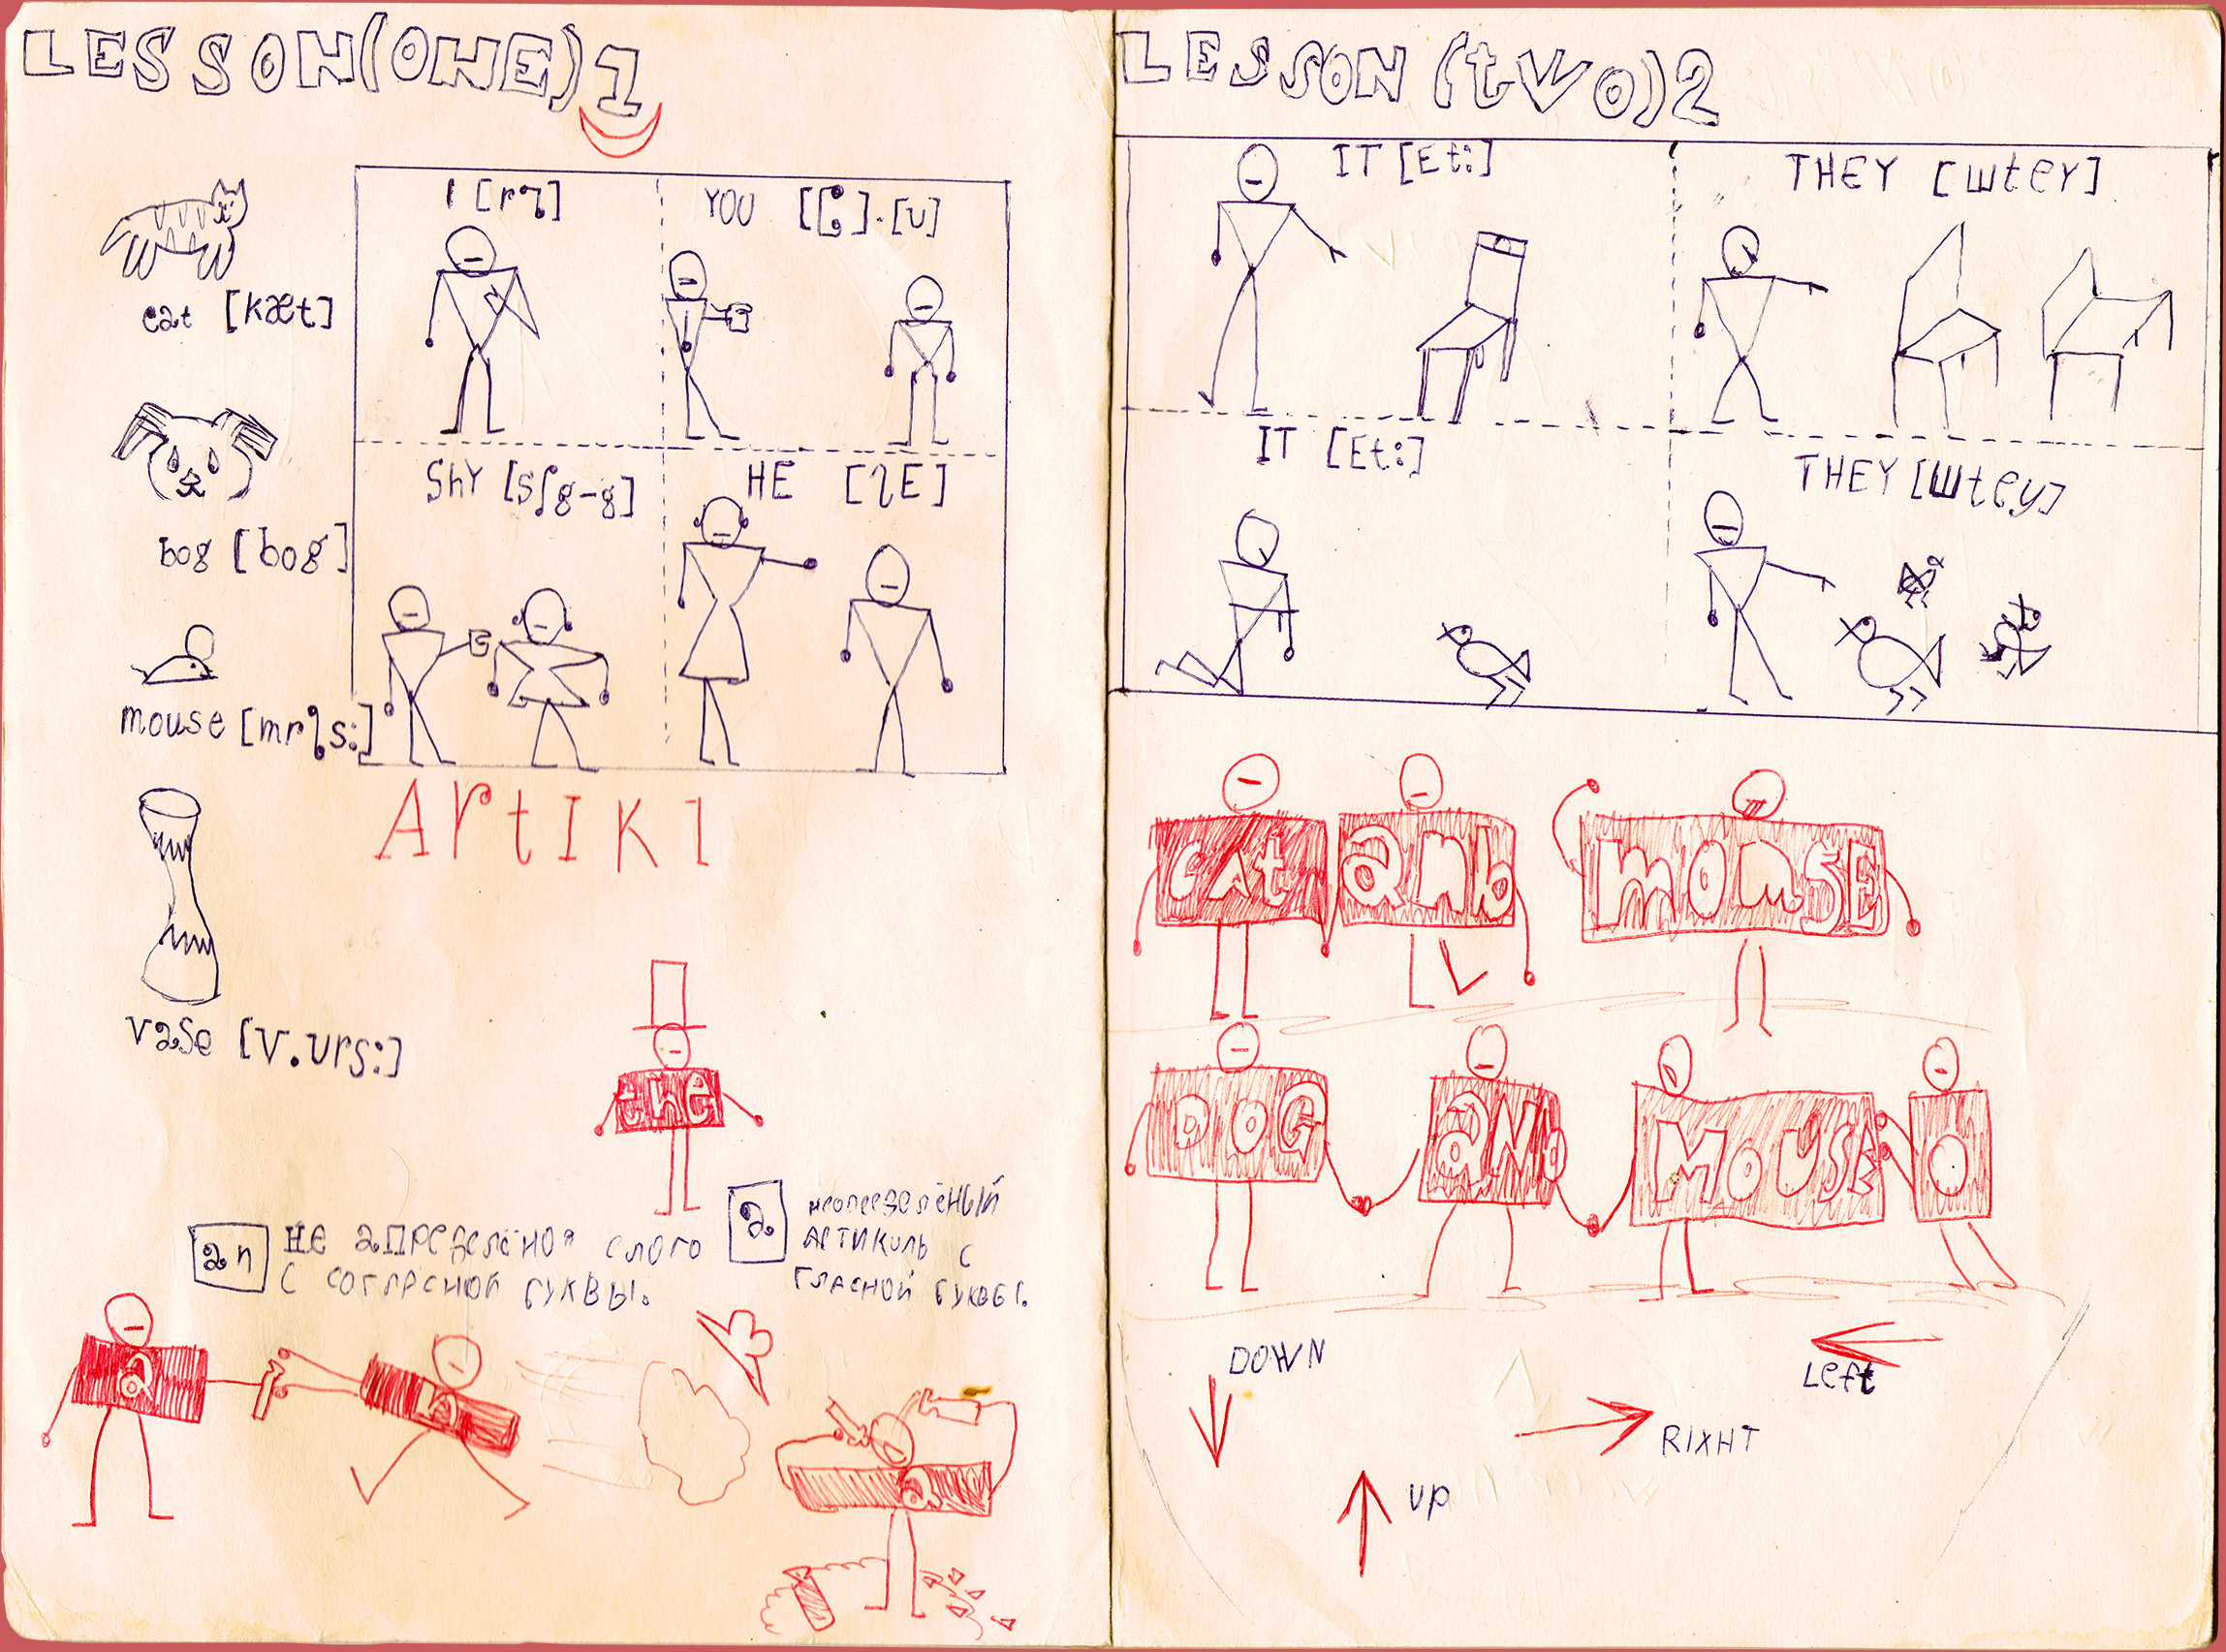 LESSON(ONE)1
cat [kæt]
bog [bog]
mouse
vase [v.urs:]
I
YOU [u]
ShY
HE
Artikl
the
an
НЕ aПРеделёноя слого
С согласной БУКВЫ.
a
неопеезелёНЫЙ
АРТИКиль с
гласной БУКВЫ.
a
a
a
LESSON (two) 2
IT [Et:]
THEY [шteY]
IT [Et:]
THEY [Шtey]
CAt anb momSE
DOG aND MOUSE O
DOWN
Left
RIXHT
UP